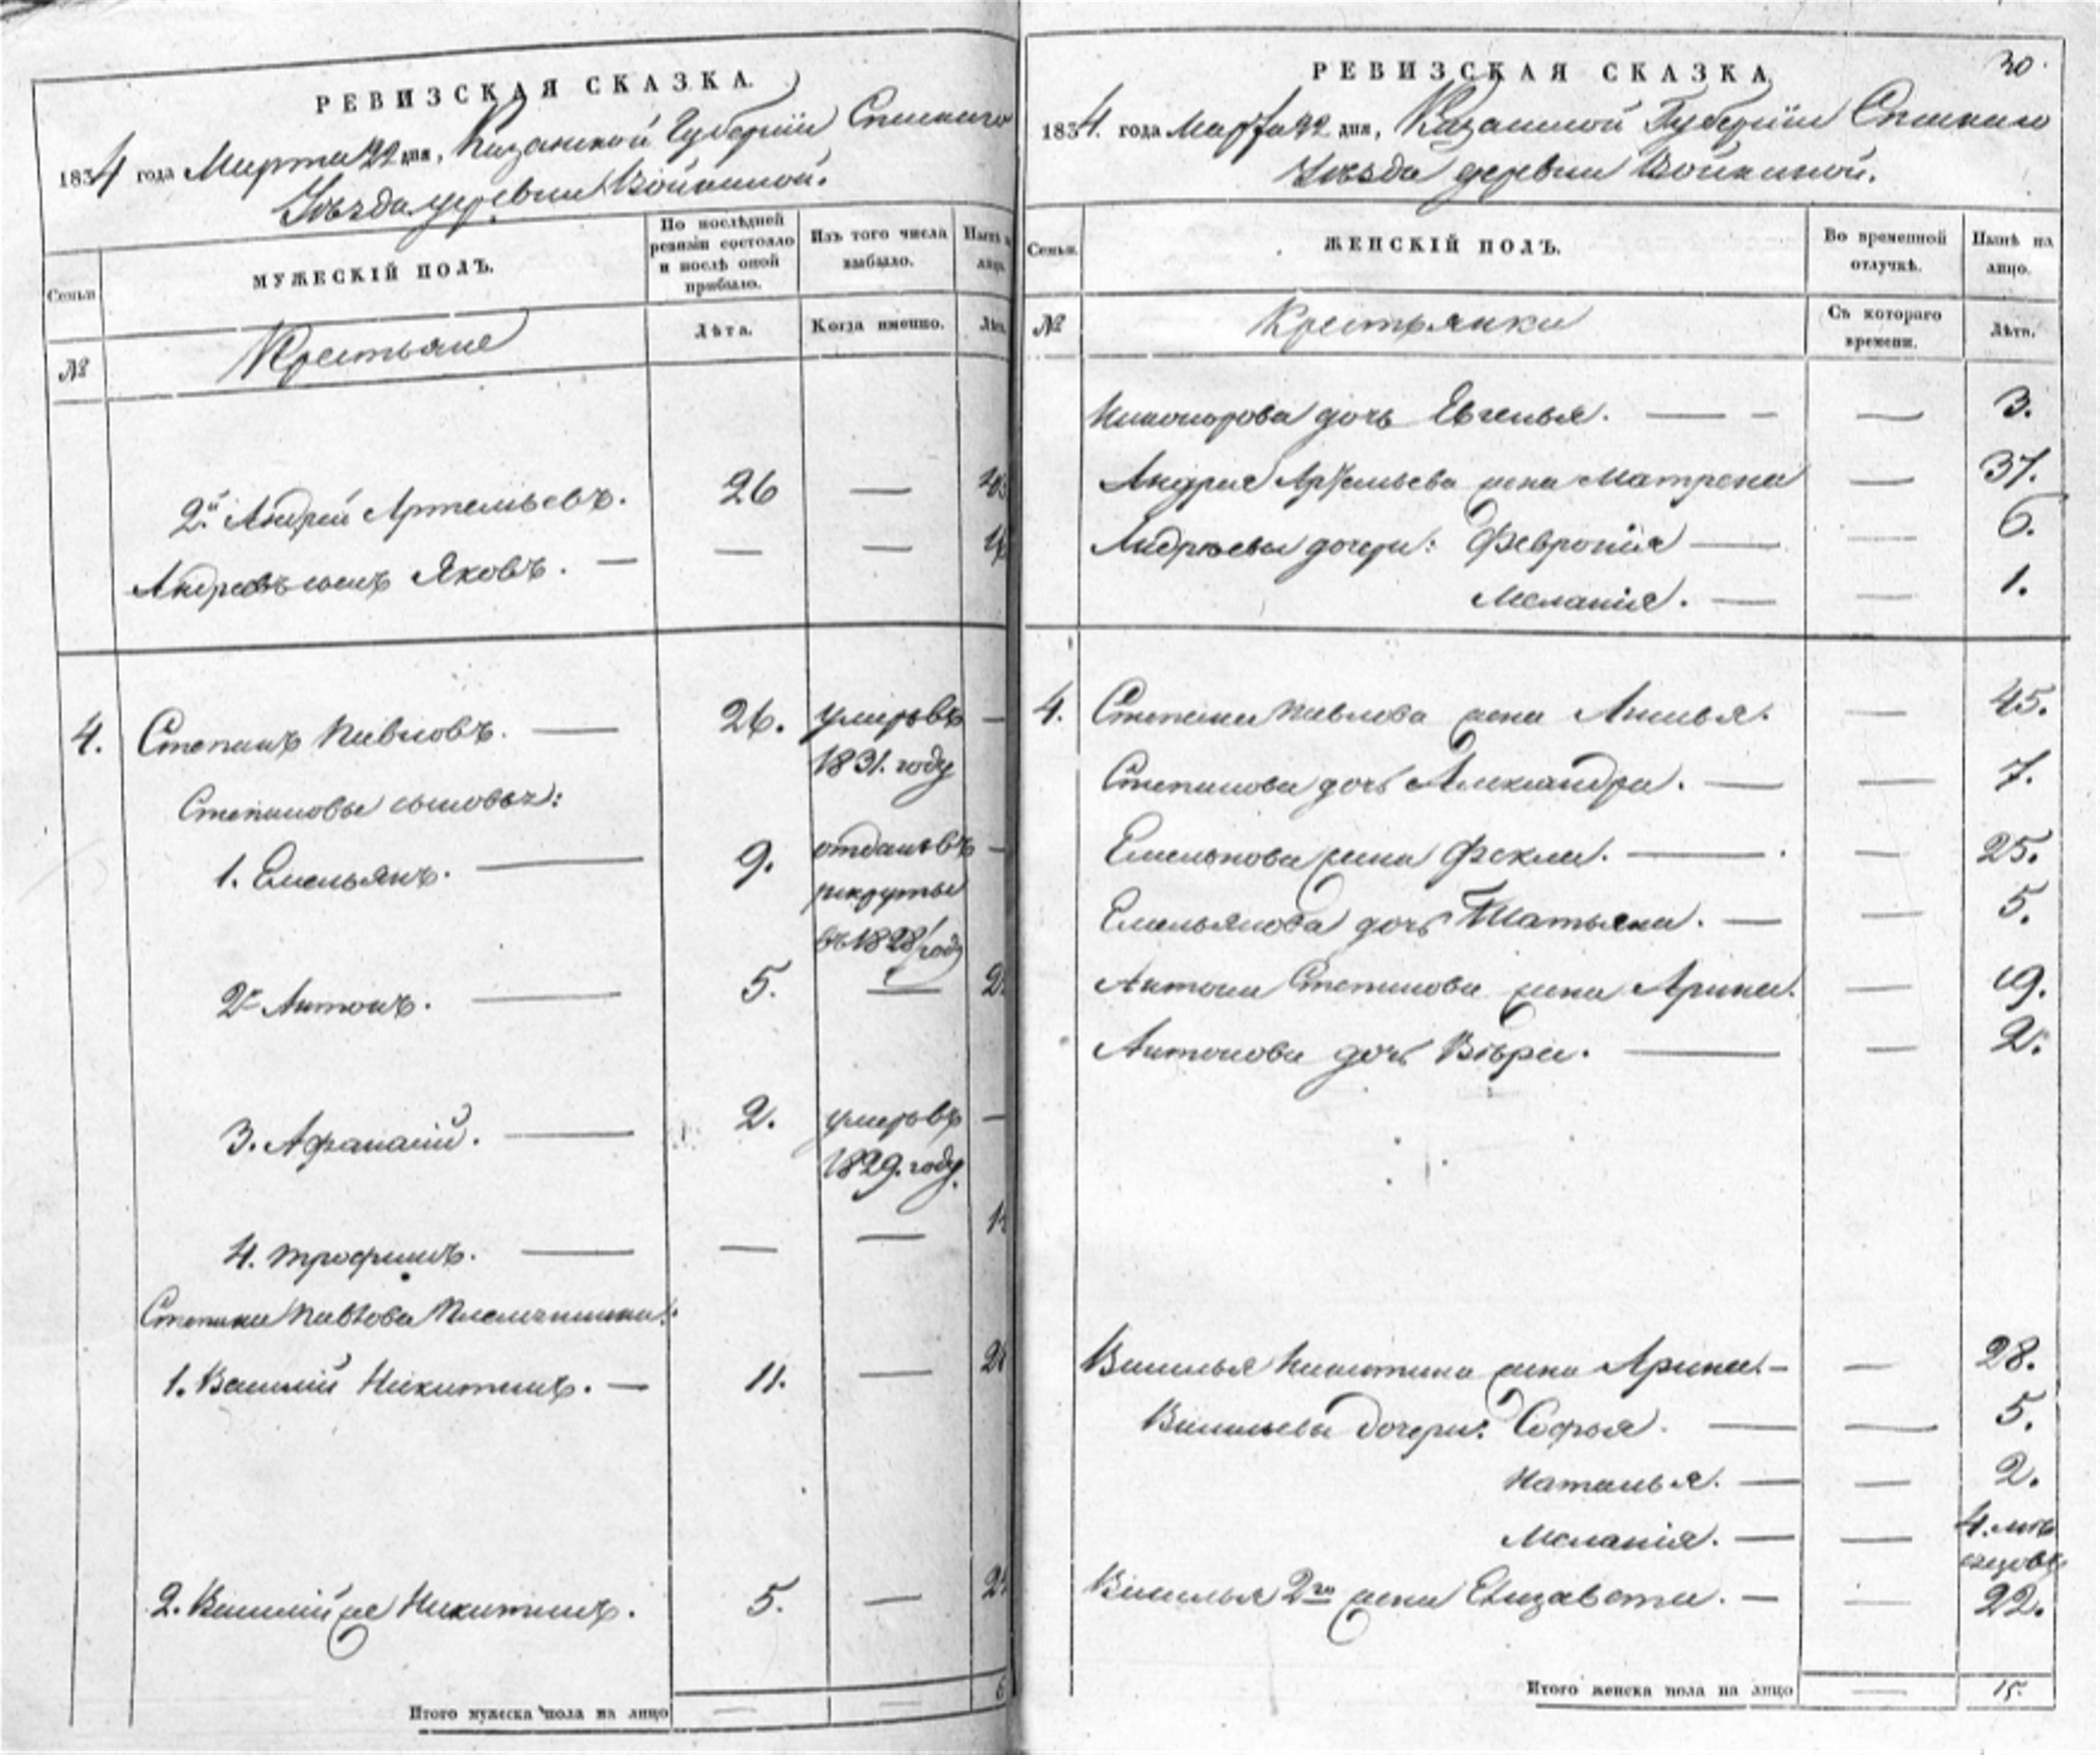 РЕВИЗСКАЯ СКАЗКА.
1834 года Марта 22 дня, Казанской Губернiи Спаскаго
Уѣзда деревни Войкиной.
Семьи
МУЖЕСКIЙ ПОЛЪ.
По послѣдней ревизiи состояло и послѣ оной прибыло.
Изъ того числа выбыло.
Нынѣ
лицо
№
Крестьяне
Лѣта.
Когда именно.
Лѣт
2й Андрей Артемьевъ. 26 —
Андреевъ сынъ Яковъ. — — —
4. Степанъ Павловъ. — 26. умеръ въ —
1831. году
Степановы сыновья:
1. Емельянъ. — 9. отданъ въ —
рекруты
въ 1828 году
2. Антонъ. — 5. —
3. Афанасiй. — 2. умеръ въ —
1829. году.
4. Трофимъ. — — —
Степана Павлова племянники:
1. Василiй Никитинъ. — 11. —
2. Василiй же Никитинъ. 5. —
Итого мужеска пола на лицо — —
30.
РЕВИЗСКАЯ СКАЗКА.
1834. года Марта 22 дня, Казанской Губернiи Спаскаго
Уѣзда деревни Войкиной.
Семьи.
ЖЕНСКIЙ ПОЛЪ.
Во временной отлучкѣ.
Нынѣ на лицо.
№
Крестьянки
Съ котораго времени.
Лѣта.
Никонорова дочь Евгенья. — - — 3.
Андрея Артемьева жена Матрена — 37.
Андреевы дочери: Февронiя — — 6.
Меланiя. — — 1.
4. Степана Павлова жена Анисья. — 45.
Степанова дочь Александра. — — 7.
Емельянова жена Фекла. — — 25.
Емельянова дочь Татьяна. — — 5.
Антона Степанова жена Арина. — 19.
Антонова дочь Вѣра. — — 2.
Василья Никитина жена Арина. — — 28.
Васильевы дочери: Софья. — — 5.
Наталья. — — 2.
Меланiя. — — 4. мѣ
сяцовъ
Василья 2го жена Елизавета. — — 22.
Итого женска пола на лицо — 15.